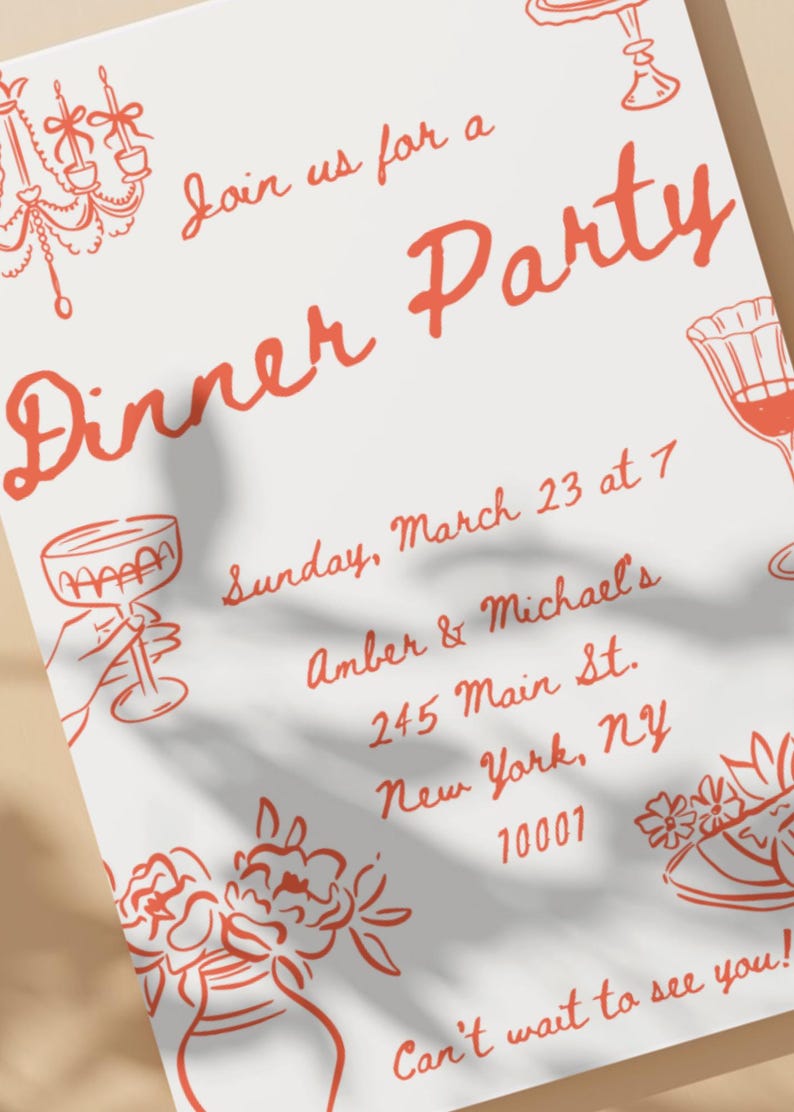 Join us for a
Dinner Party
Sunday, March 23 at 7
Amber & Michael's
245 Main St.
New York, NY
10001
Can't wait to see you!